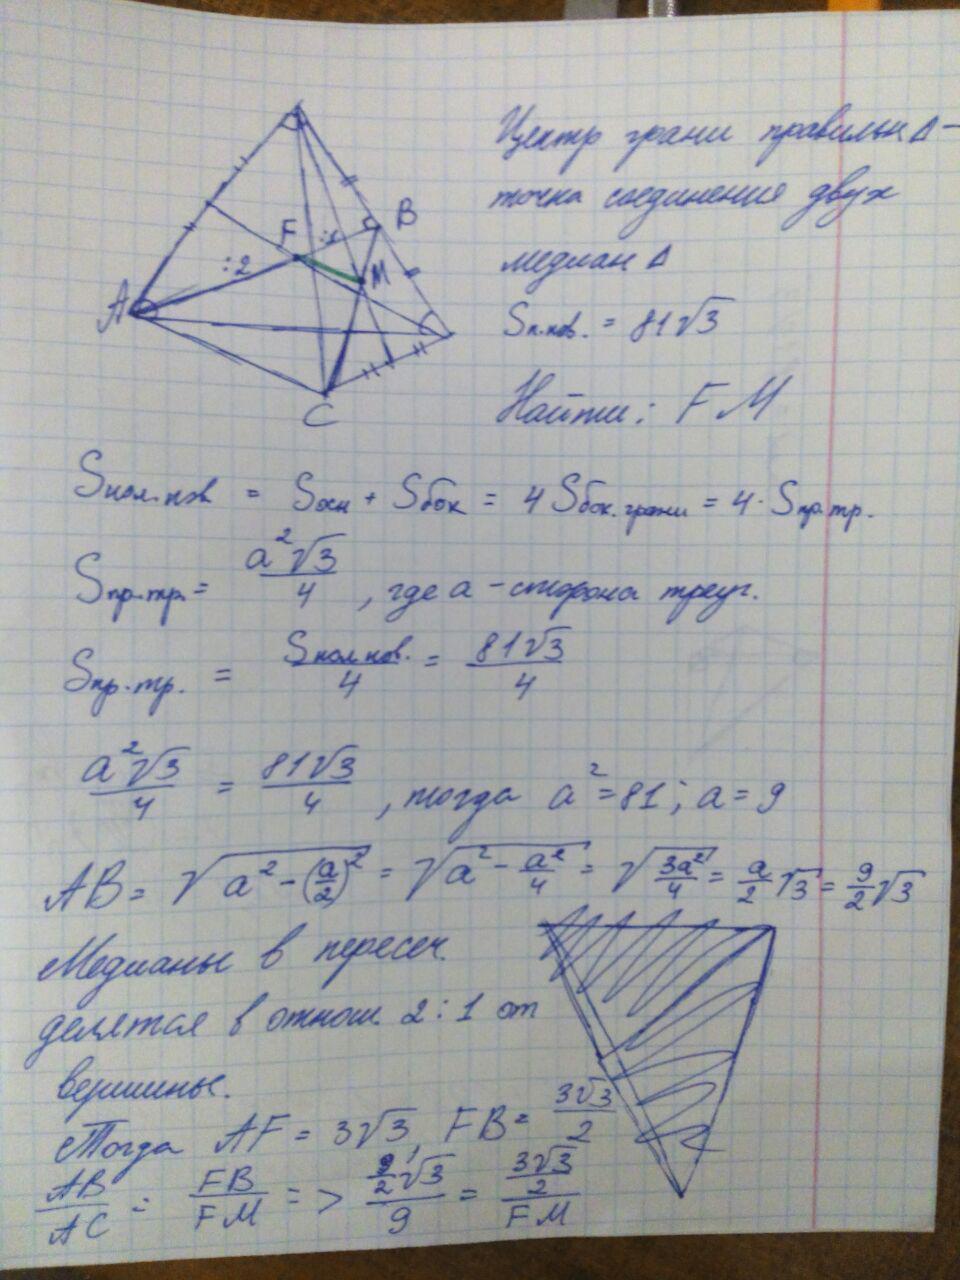 Центр грани правильн Δ –
точка соединения двух
медиан Δ
Sп.пов. = 81√3
Найти: FM
A
B
C
F
M
:2
:1
Sпол.пов = Sосн + Sбок = 4 Sбок.грани = 4·Sпр.тр.
Sпр.тр. = a²√3/4, где a – сторона треуг.
Sпр.тр. = Sпол.пов./4 = 81√3/4
a²√3/4 = 81√3/4, тогда a²=81; a=9
AB = √(a² – (a/2)²) = √(a² – a²/4) = √(3a²/4) = a/2 √3 = 9/2 √3
Медианы в пересеч.
делятся в отнош. 2:1 от
вершины.
Тогда AF = 3√3, FB = 3√3/2
AB/AC = FB/FM => (9/2 √3)/9 = (3√3/2)/FM